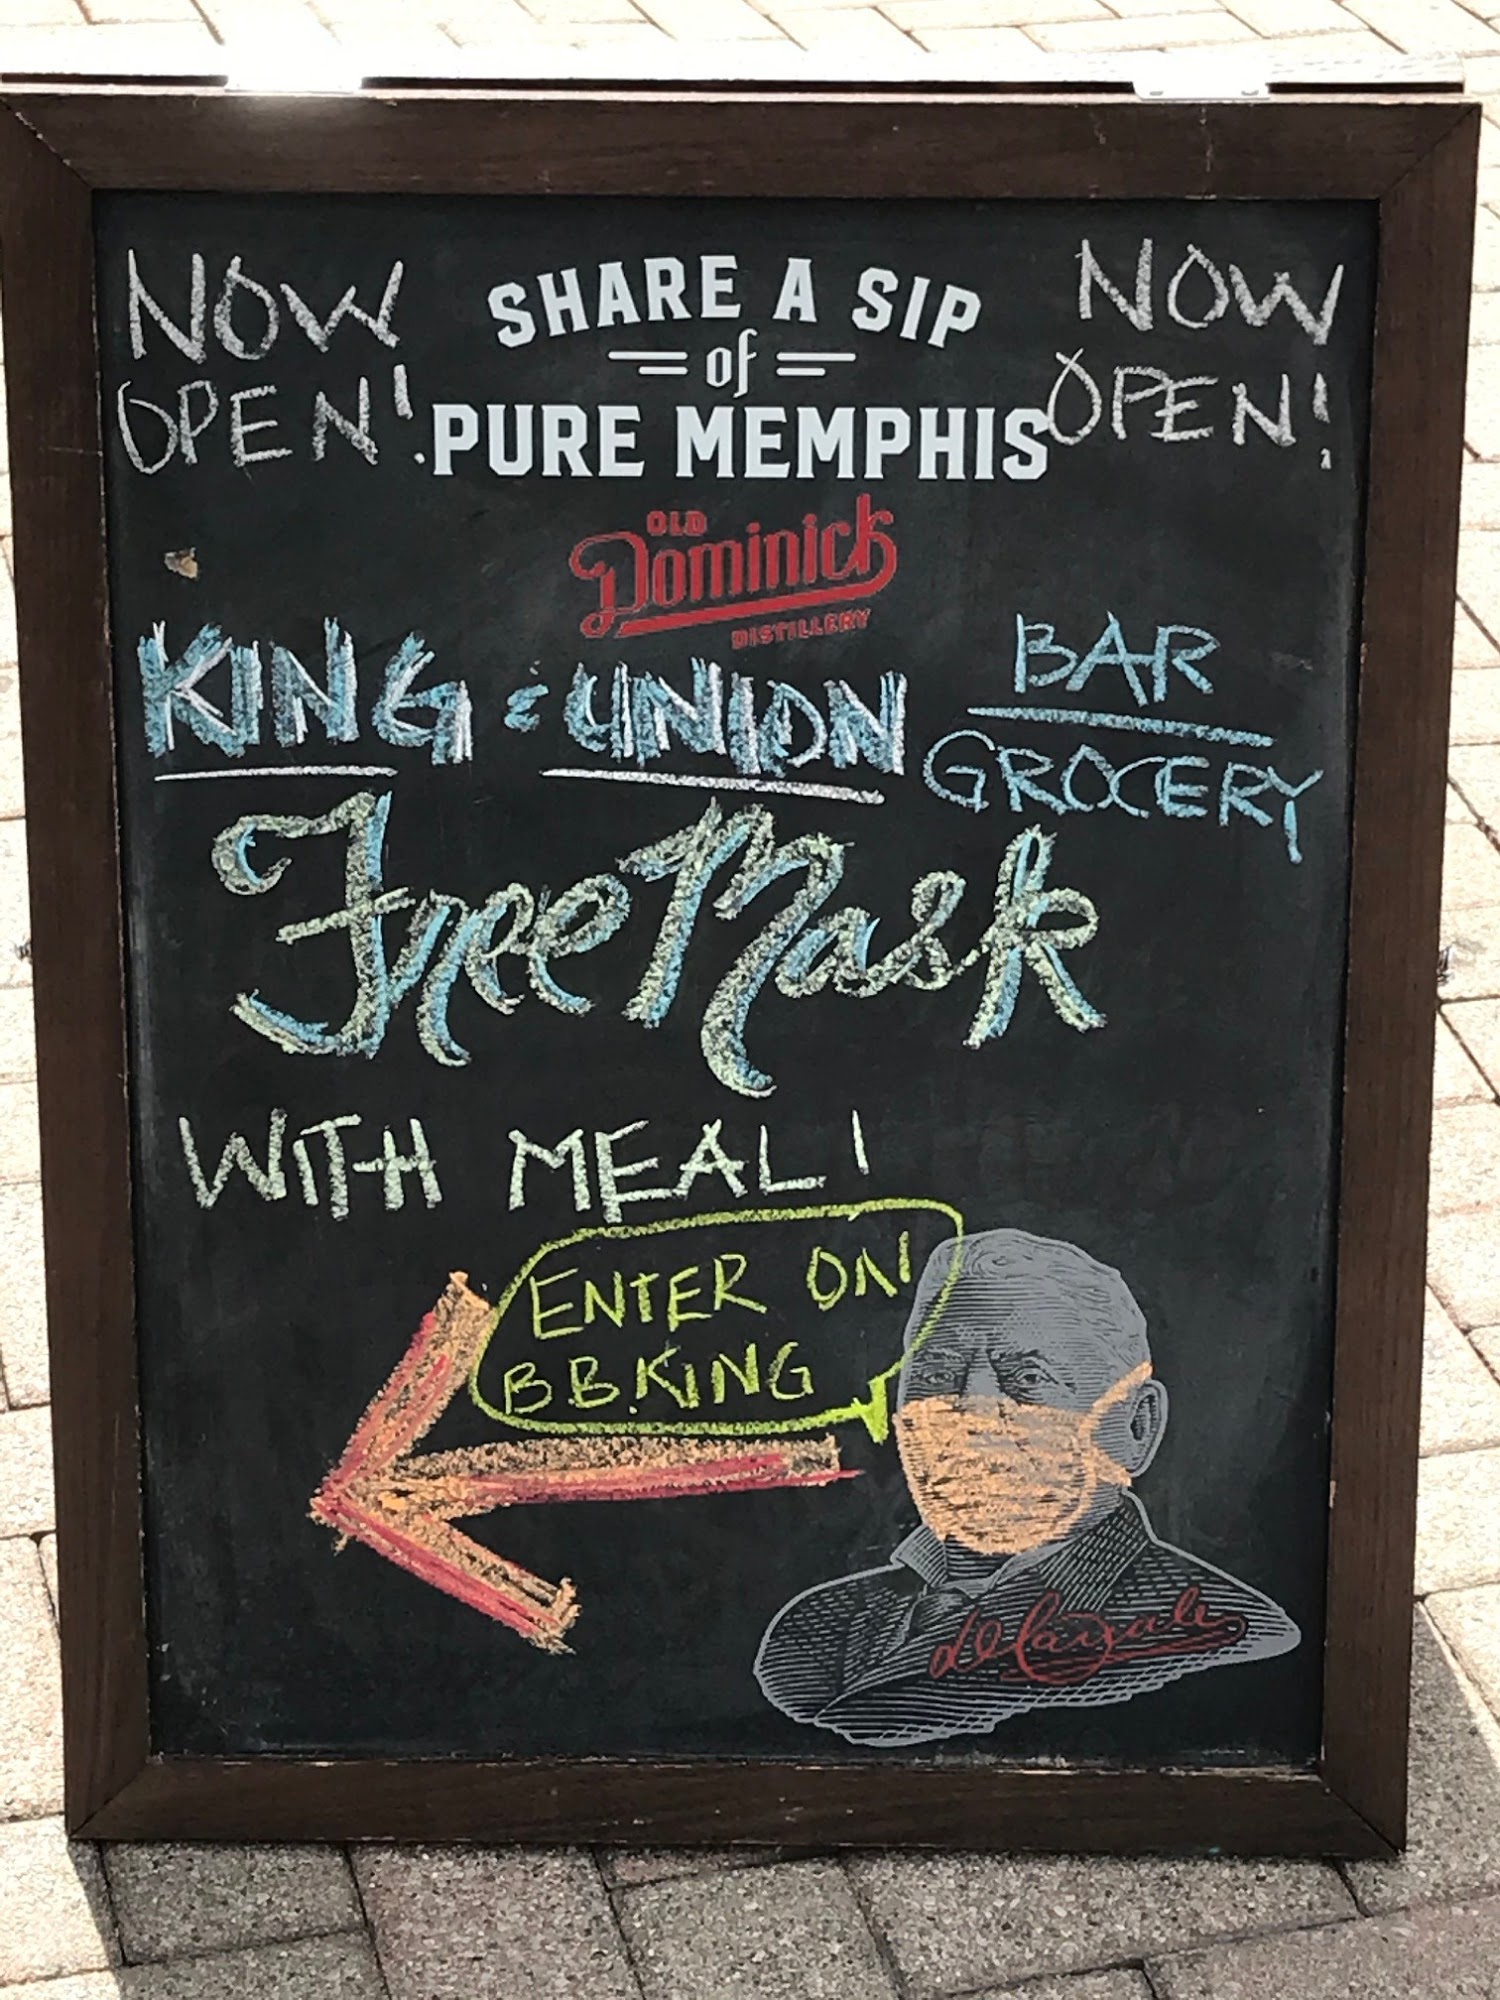 NOW OPEN!
SHARE A SIP
of
PURE MEMPHIS
NOW OPEN!
OLD
Dominick
DISTILLERY
KING & UNION
BAR
GROCERY
Free Mask
WITH MEAL!
ENTER ON
B.B.KING